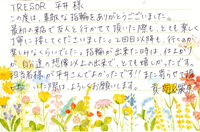 TRESOR 平井様
この度は、素敵な指輪をありがとうございました。
最初は私で友人と行かせて頂いた際も、とても楽しく
丁寧に接してくださいました。2回目以降も、行くのが
楽しみなくらいでした。指輪が出来た時は、仕上がり
が自分達の想像以上の出来で、とても嬉しかったです。
担当者様が平井さんでよかったです!!また寄らせて頂
いた際は、よろしくお願いします。